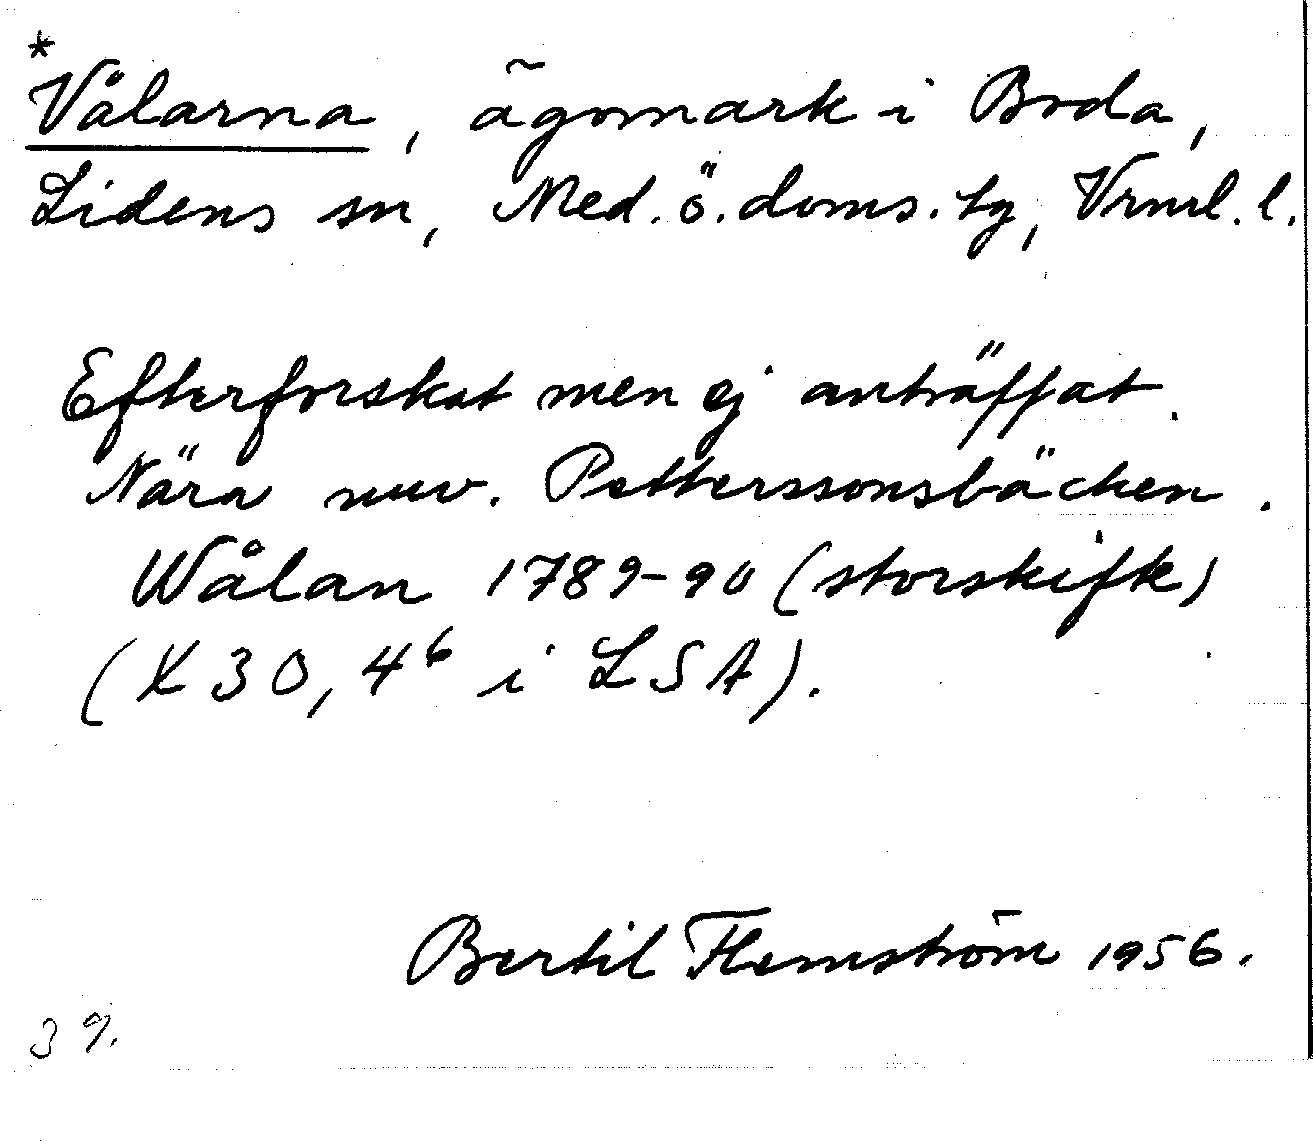 *
Vålarna, ägomark i Boda,
Lidens sn, Med. ö. doms. tg, Vrnrl. l.
Efterforskat men ej anträffat.
Nära nuv. Petterssonsbäcken.
Wålan 1789-90 (storskifte)
(X 30, 4⁶ i LSA).
Bertil Flemström 1956.
3 9.